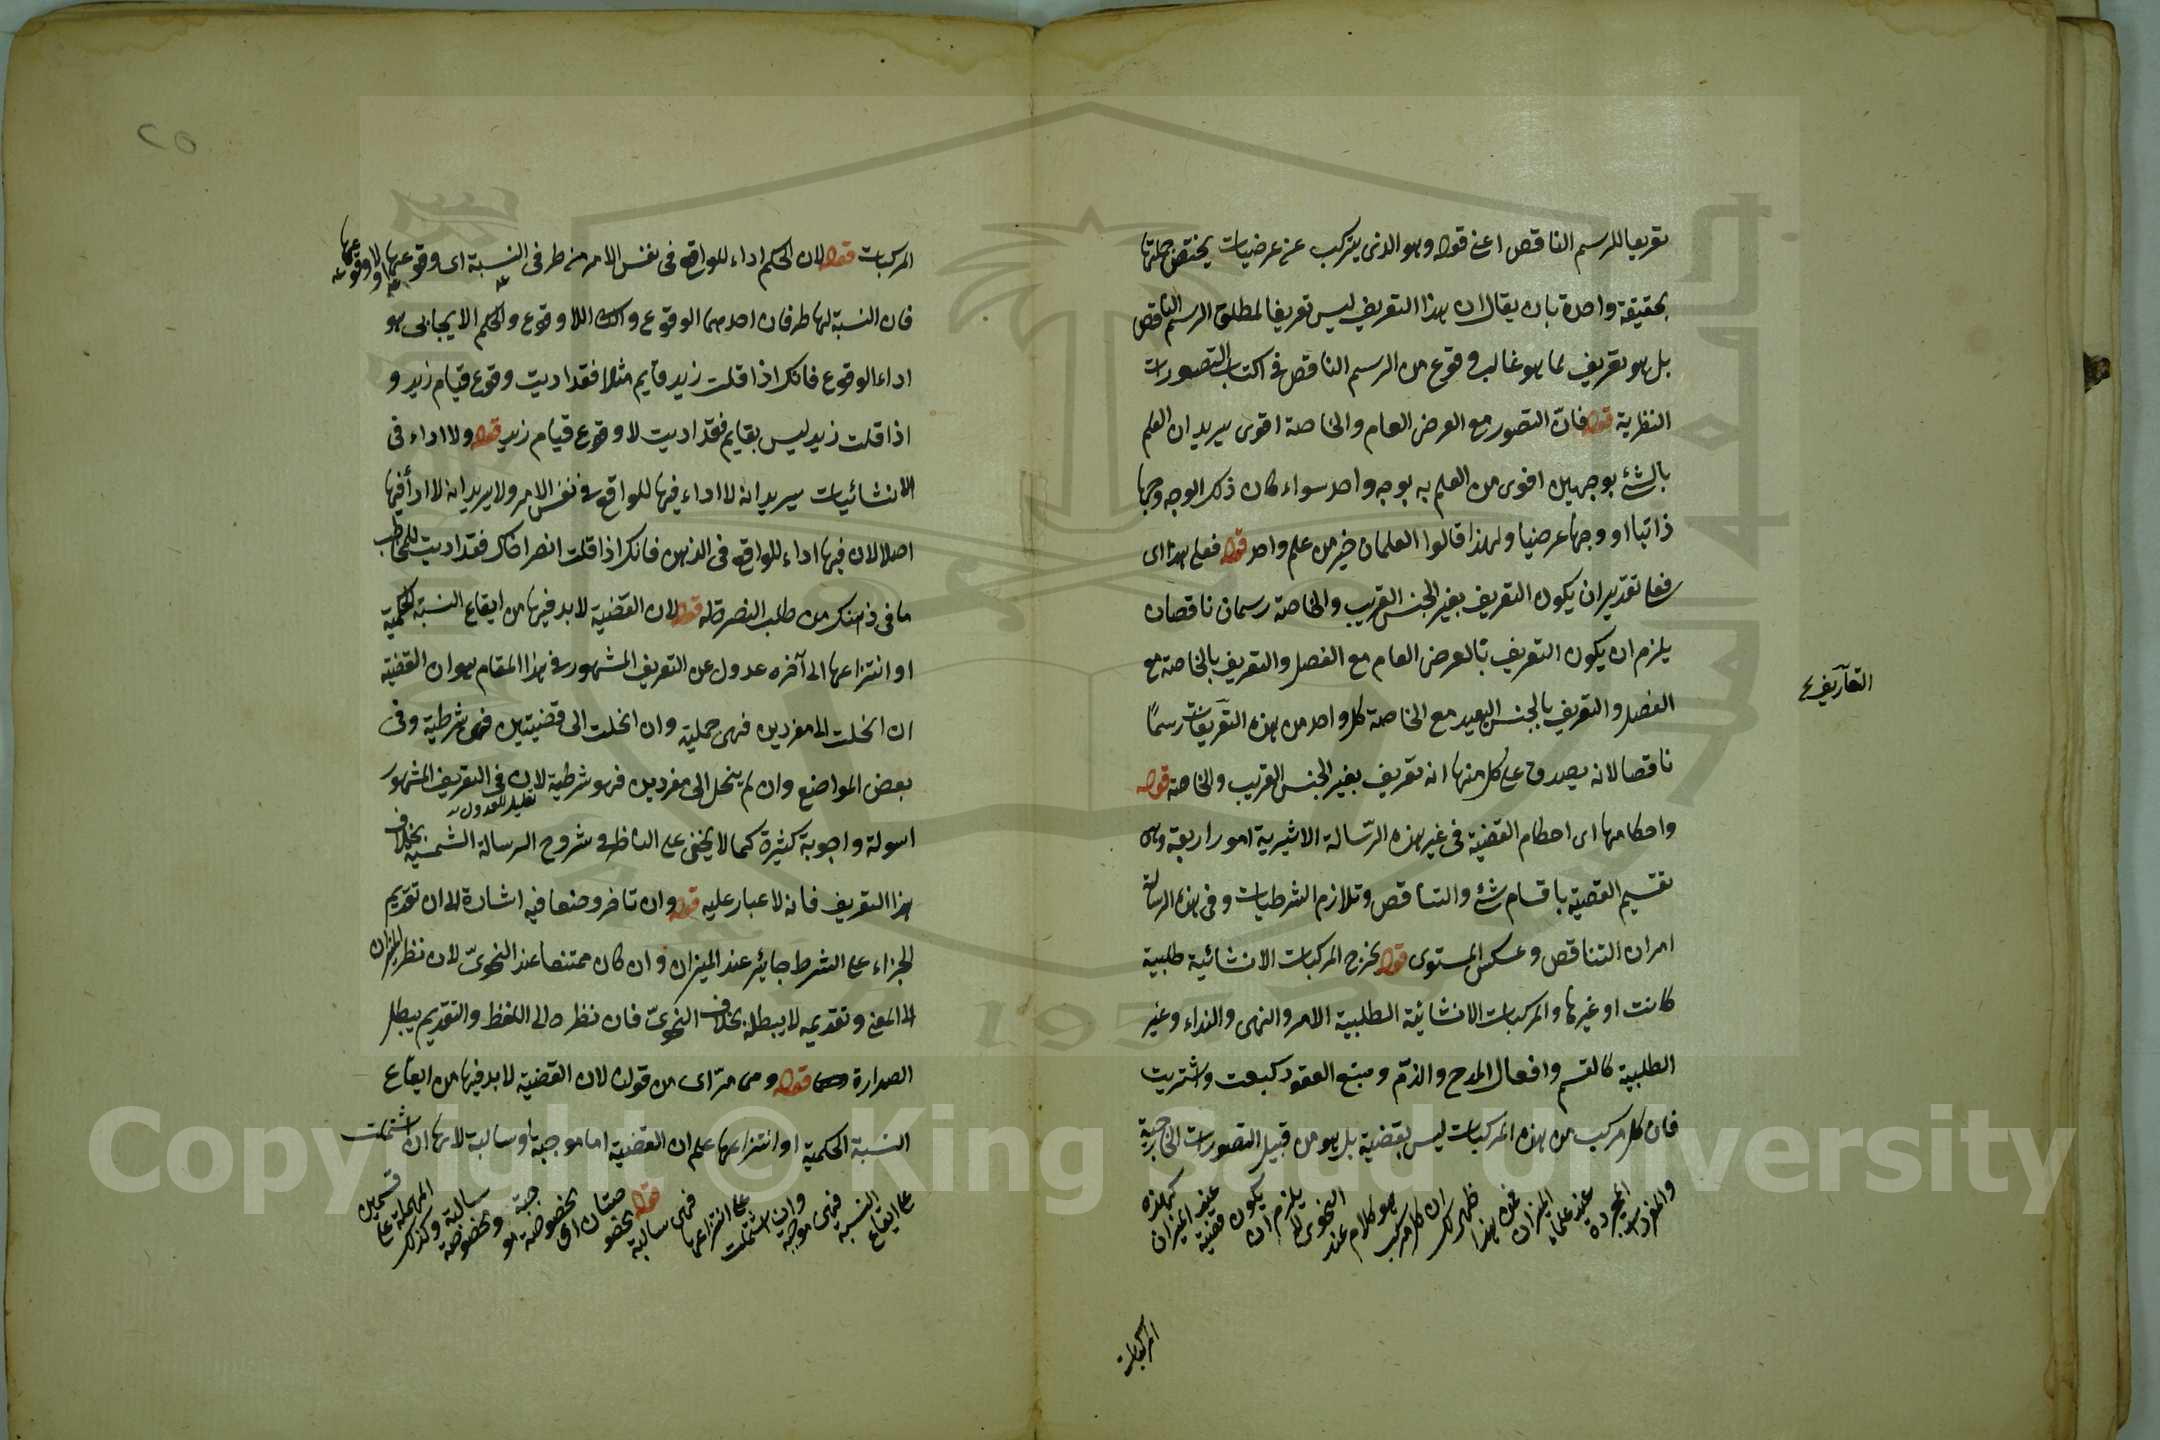 تعريفا للرسم الناقص اعنى قوله وهو الذى يتركب عن عرضيات يختص جملتها
بحقيقة واحدة بان يقال ان هذا التعريف ليس تعريفا لمطلق الرسم الناقص
بل هو تعريف لما هو غالب وقوع من الرسم الناقص فى اكتساب التصورات
النظرية قوله فان التصور مع العرض العام والخاصة اقوى يريد ان العلم
بالشئ بوجهين اقوى من العلم به بوجه واحد سواء كان ذلك الوجه وجها
ذاتيا او وجها عرضيا ولهذا قالوا العلمان خير من علم واحد قوله فعلى هذا اى
فعلى تقدير ان يكون التعريف بغير الجنس القريب والخاصة رسمان ناقصان
يلزم ان يكون التعريف بالعرض العام مع الفصل والتعريف بالخاصة مع
الفصل والتعريف بالجنس البعيد مع الخاصة كل واحد من هذه التعريفات رسمًا
التعاريف
ناقصا لانه يصدق على كل منها انه تعريف بغير الجنس القريب والخاصة قوله
واحكامها اى احكام القضية فى غير هذه الرّسالة الاثيرية امور اربعة وهى
تقسيم القضية باقسام شئ والتناقض وتلازم الشرطيات وفى هذه الرسالة
امران التناقض وعكس المستوى قوله يخرج المركبات الانشائية طلبية
كانت او غيرها والمركبات الانشائية الطلبية الامر والنهى والنداء وغير
الطلبية كالقسم وافعال المدح والذمّ وصيغ العقود كبعت واشتريت
فان كل مركب من هذه المركبات ليس بقضية بل هو من قبيل التصورات الخارجية
والمفردات المجردة عند علماء الميزان فمن هذا ظهر لك ان كل مركب هو كلام عند النحوى لا يلزم ان يكون قضية عند الميزان كهذه
المركبات
٢٥
المركبات قوله لان الحكم اداء للواقع فى نفس الامر من طرفى النسبة اى وقوعها او لا وقوعها
فان النسبة لها طرفان احدهما الوقوع والآخر اللا وقوع والحكم الايجابى هو
اداء الوقوع فانك اذا قلت زيد قايم مثلا فقد اديت وقوع قيام زيد و
اذا قلت زيد ليس بقايم فقد اديت لا وقوع قيام زيد قوله ولا اداء فى
الانشائيات يريد انه لا اداء فيها للواقع فى نفس الامر ولا يريد انه لا اداء فيها
اصلا لان فيها اداء للواقع فى الذهن فانك اذا قلت انصر اخاك فقد اديت للمخاطب
ما فى ذهنك من طلب النصرة له قوله لان القضية لابد فيها من ايقاع النسبة الحكمية
او انتزاعها الى آخره عدول عن التعريف المشهور فى هذا المقام هو ان القضية
ان انحلت الى مفردين فهى حملية وان انحلت الى قضيتين فهى شرطية وفى
بعض المواضع وان لم ينحل الى مفردين فهو شرطية لان فى التعريف المشهور
تعليل للعدول
اسولة واجوبة كثيرة كما لا يخفى على الناظر فى شروح الرسالة الشمسية بخلاف
هذا التعريف فانه لا غبار عليه قوله وان تأخر وضعا فيه اشارة الى ان تقديم
الجزاء على الشرط جايز عند الميزان وان كان ممتنعا عند النحوىّ لان نظر الميزان
الى المعنى وتقديمه لا يبطله بخلاف النحوىّ فان نظره الى اللفظ والتقديم يبطل
الصدارة قوله ومن مرّ اى من قوله لان القضية لابد فيها من ايقاع
النسبة الحكمية او انتزاعها علم ان القضية اما موجبة او سالبة لانها ان اشتملت
على ايقاع النسبة فهى موجبة وان اشتملت على انتزاعها فهى سالبة قوله مخصوصتان اى مخصوصة موجبة ومخصوصة سالبة وكذلك المهملة على قسمين